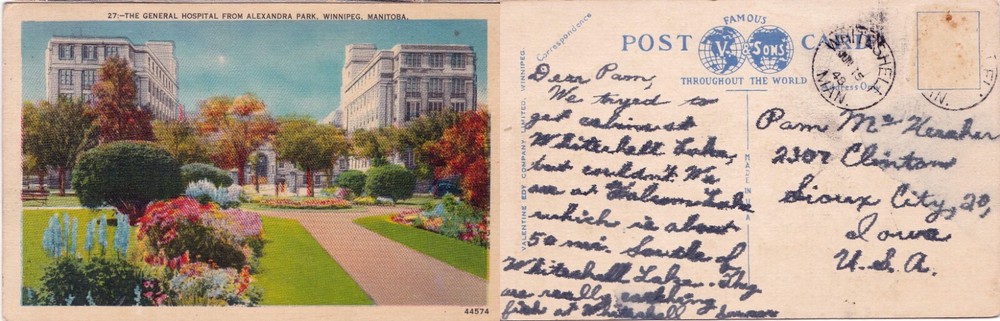 27:-THE GENERAL HOSPITAL FROM ALEXANDRA PARK, WINNIPEG, MANITOBA.
44574
Correspondence
FAMOUS
POST V. & SONS CARD
THROUGHOUT THE WORLD
Address Only
VALENTINE EDY COMPANY LIMITED, WINNIPEG.
MADE IN U.S.A.
WHITESHELL
15
48
MAN.
Dear Pam,
We tryed to
get cabins at
Whiteshell Lake,
but couldn't. We
are at Welcome Lake
which is about
50 mi. South of
Whiteshell Lake. They
are really catching
fish at Whiteshell
Pam
2307 Clinton
Sioux City, 20,
Iowa
U.S.A.